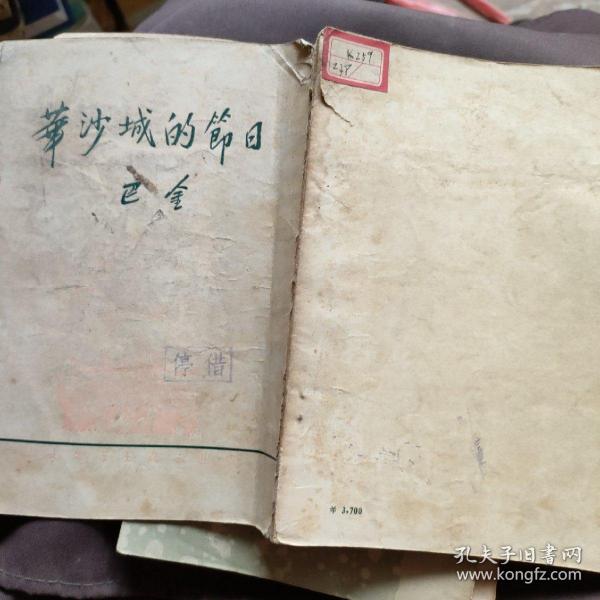 華沙城的節日
巴金
停借
K259
￥ 3,700
孔夫子旧书网
www.kongfz.com